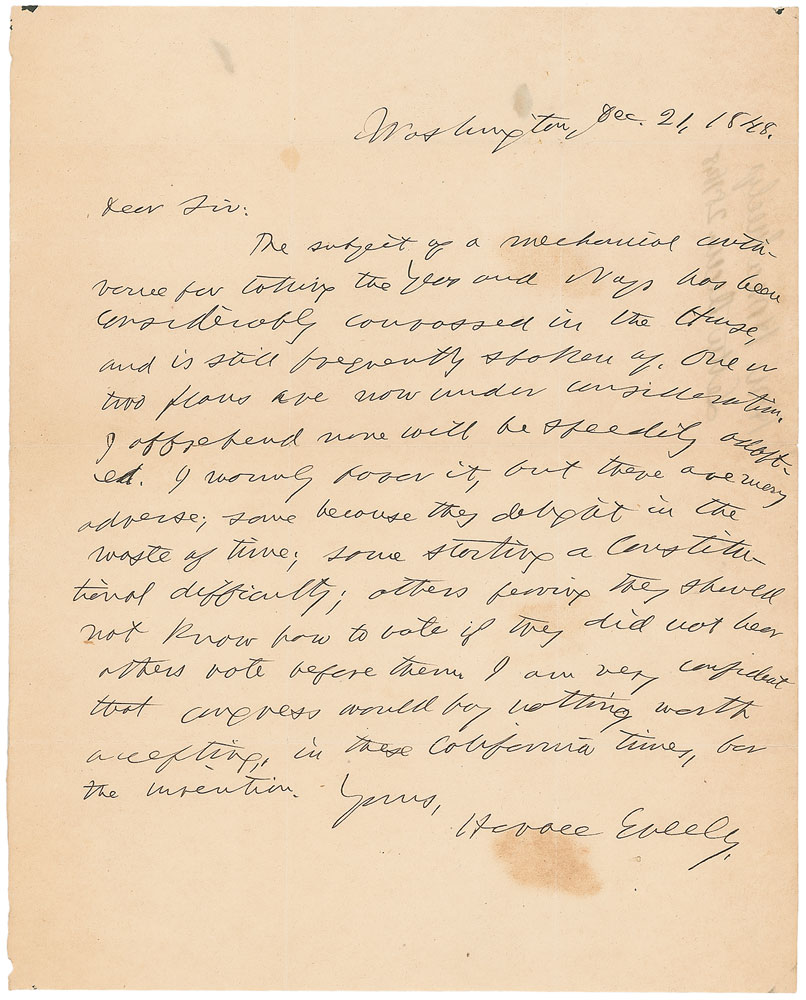 Washington, Dec. 21, 1848.
Dear Sir:
The subject of a mechanical contri-
vance for taking the Yeas and Nays has been
considerably canvassed in the House,
and is still frequently spoken of. One or
two plans are now under consideration.
I apprehend none will be speedily adopt-
ed. I warmly favor it, but there are many
adverse; some because they delight in the
waste of time; some starting a Constitu-
tional difficulty; others fearing they should
not know how to vote if they did not hear
others vote before them. I am very confident
that Congress would pay nothing worth
accepting, in these California times, for
the invention.
Yours,
Horace Greeley.